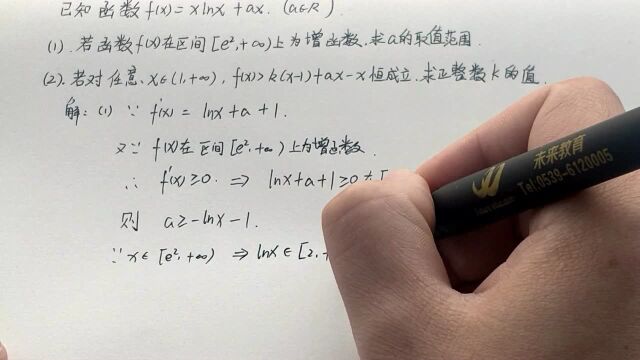 已知函数f(x)=xlnx+ax.(a∈R).
(1).若函数f(x)在区间[e²,+∞)上为增函数,求a的取值范围.
(2).若对任意x∈(1,+∞),f(x)>k(x-1)+ax-x恒成立.求正整数k的值.
解:(1) ∵ f'(x)=lnx+a+1.
又∵ f(x)在区间[e²,+∞)上为增函数.
∴ f'(x)≥0. ⇒ lnx+a+1≥0
则 a≥-lnx-1.
∵x∈[e²,+∞) ⇒ lnx∈[2,
未来教育
Tel.0539-6120005